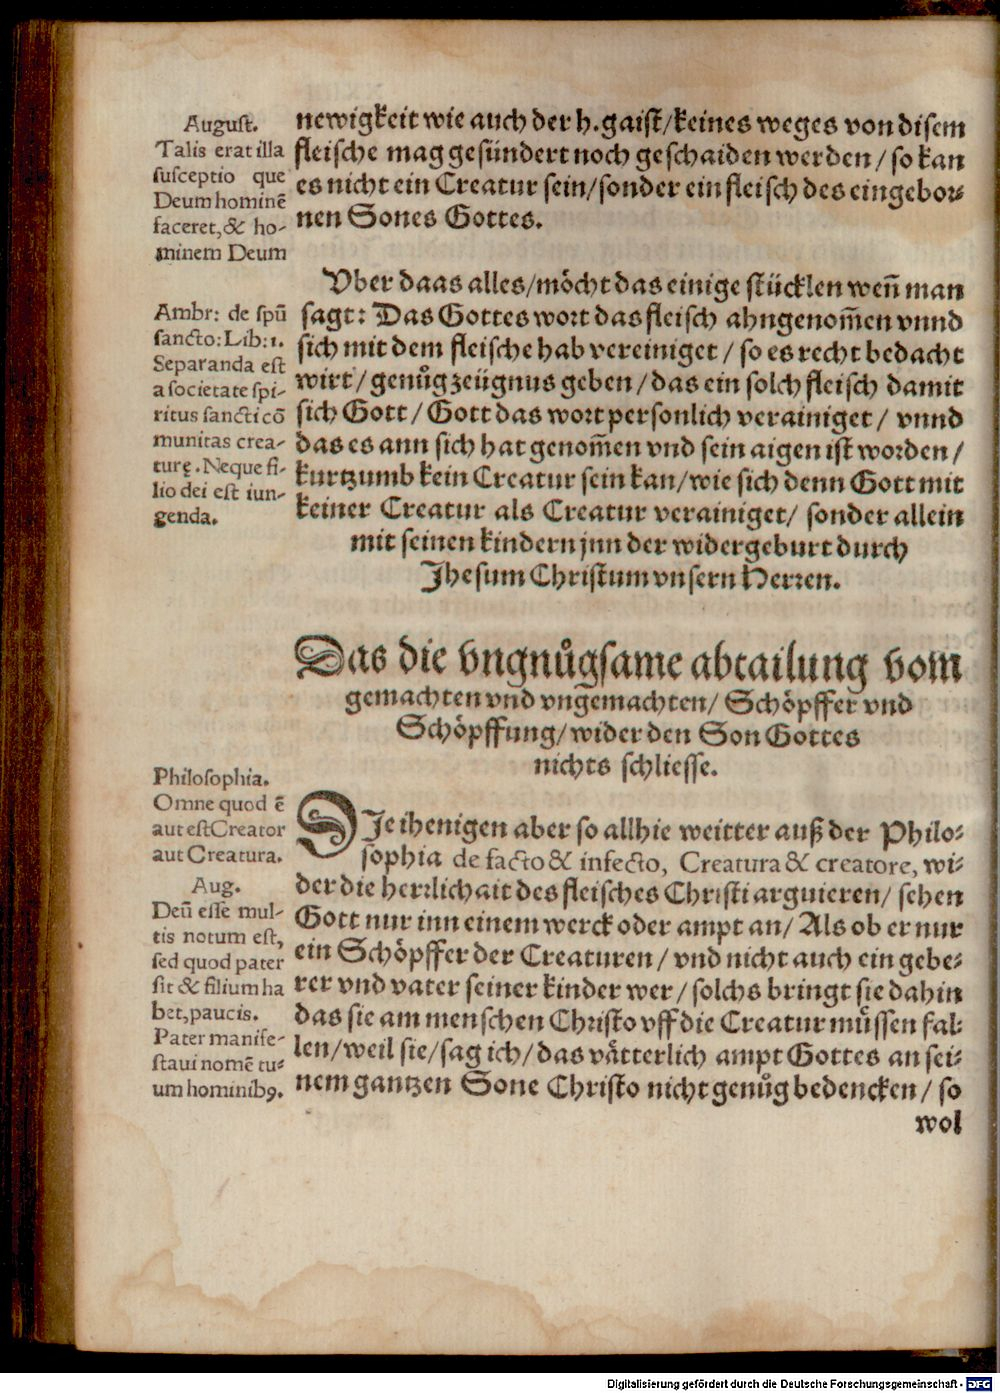 newigkeit wie auch der h. gaist/keines weges von disem
fleische mag gesündert noch geschaiden werden/so kan
es nicht ein Creatur sein/sonder ein fleisch des eingebor-
nen Sones Gottes.
Vber daas alles/möcht das einige stücklen weñ man
sagt: Das Gottes wort das fleisch ahngenom̃en vnnd
sich mit dem fleische hab vereiniget/so es recht bedacht
wirt/genůg zeügnus geben/das ein solch fleisch damit
sich Gott/Gott das wort personlich verainiget/vnnd
das es ann sich hat genom̃en vnd sein aigen ist worden/
kurtzumb kein Creatur sein kan/wie sich denn Gott mit
keiner Creatur als Creatur verainiget/sonder allein
mit seinen kindern jnn der widergeburt durch
Jhesum Christum vnsern Herren.
Das die vngnůgsame abtailung vom
gemachten vnd vngemachten/Schöpffer vnd
Schöpffung/wider den Son Gottes
nichts schliesse.
DIe ihenigen aber so allhie weitter auß der Philo-
sophia de facto & infecto, Creatura & creatore, wi-
der die herrlichait des fleisches Christi arguieren/sehen
Gott nur inn einem werck oder ampt an/Als ob er nur
ein Schöpffer der Creaturen/vnd nicht auch ein gebe-
rer vnd vater seiner kinder wer/solchs bringt sie dahin
das sie am menschen Christo vff die Creatur můssen fal-
len/weil sie/sag ich/das vätterlich ampt Gottes an sei-
nem gantzen Sone Christo nicht genůg bedencken/so
wol
August.
Talis erat illa
susceptio que
Deum hominē
faceret, & ho-
minem Deum
Ambr: de spū
sancto: Lib: 1.
Separanda est
a societate spi-
ritus sancti cō
munitas crea-
turę. Neque fi-
lio dei est iun-
genda.
Philosophia.
Omne quod ē
aut est Creator
aut Creatura.
Aug.
Deū esse mul-
tis notum est,
sed quod pater
sit & filium ha
bet, paucis.
Pater manife-
staui nomē tu-
um hominibꝯ.
Digitalisierung gefördert durch die Deutsche Forschungsgemeinschaft - DFG